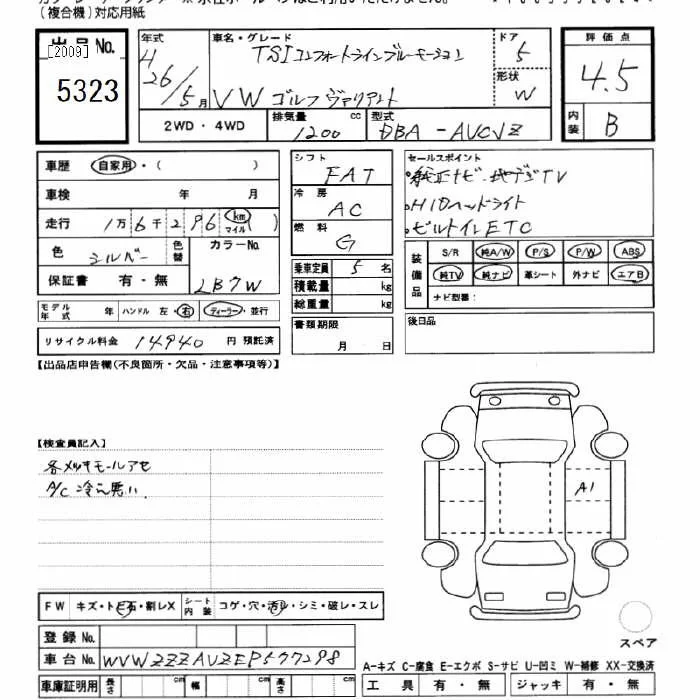 (複合機)対応用紙
出品No.
[2009]
5323
年式 H 26/5月
車名・グレード TSI コンフォートラインブルーモーション
VW ゴルフ ヴァリアント
ドア 5
形状 W
評価点 4.5
内装 B
2WD・4WD
排気量 1200 cc
型式 DBA-AUCJZ
車歴 自家用・( )
車検 年 月
走行 1万6千296 km マイル
色 シルバー 色替 カラーNo. LB7W
保証書 有・無
モデル年式 年 ハンドル 左・右 ディーラー・並行
リサイクル料金 14940 円 預託済
シフト FAT
冷房 AC
燃料 G
乗車定員 5 名
積載量 kg
総重量 kg
書類期限 月 日
セールスポイント
純正ナビ・地デジTV
HIDヘッドライト
ビルトインETC
装備品 S/R 純A/W P/S P/W ABS
純TV 純ナビ 革シート 外ナビ エアB
ナビ型番:
後日品
【出品店申告欄(不良箇所・欠品・注意事項等)】
【検査員記入】
各メッキモールアセ
A/C 冷え悪い
A1
FW キズ・トビ石・割レX シート内装 コゲ・穴・汚レ・シミ・破レ・スレ
登録No.
車台No. WVWZZZAUZEP577298
車庫証明用 長さ cm 幅 cm 高さ cm
スペア
A-キズ C-腐食 E-エクボ S-サビ U-凹ミ W-補修 XX-交換済
工具 有・無 ジャッキ 有・無